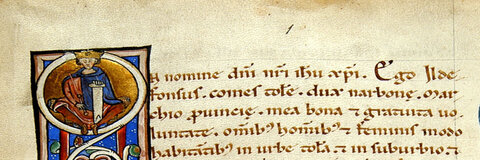 I
N nomine dn̄i nr̄i ihū xp̄i. Ego Ilde
fonsus. comes tolē. dux narbonę. mar
chio p̱uincię. mea bona & gratuita uo
luntate. om̄ibꝰ hom̄ibꝰ & feminis modo
habitātibꝰ in urbe tolā & in suburbio &